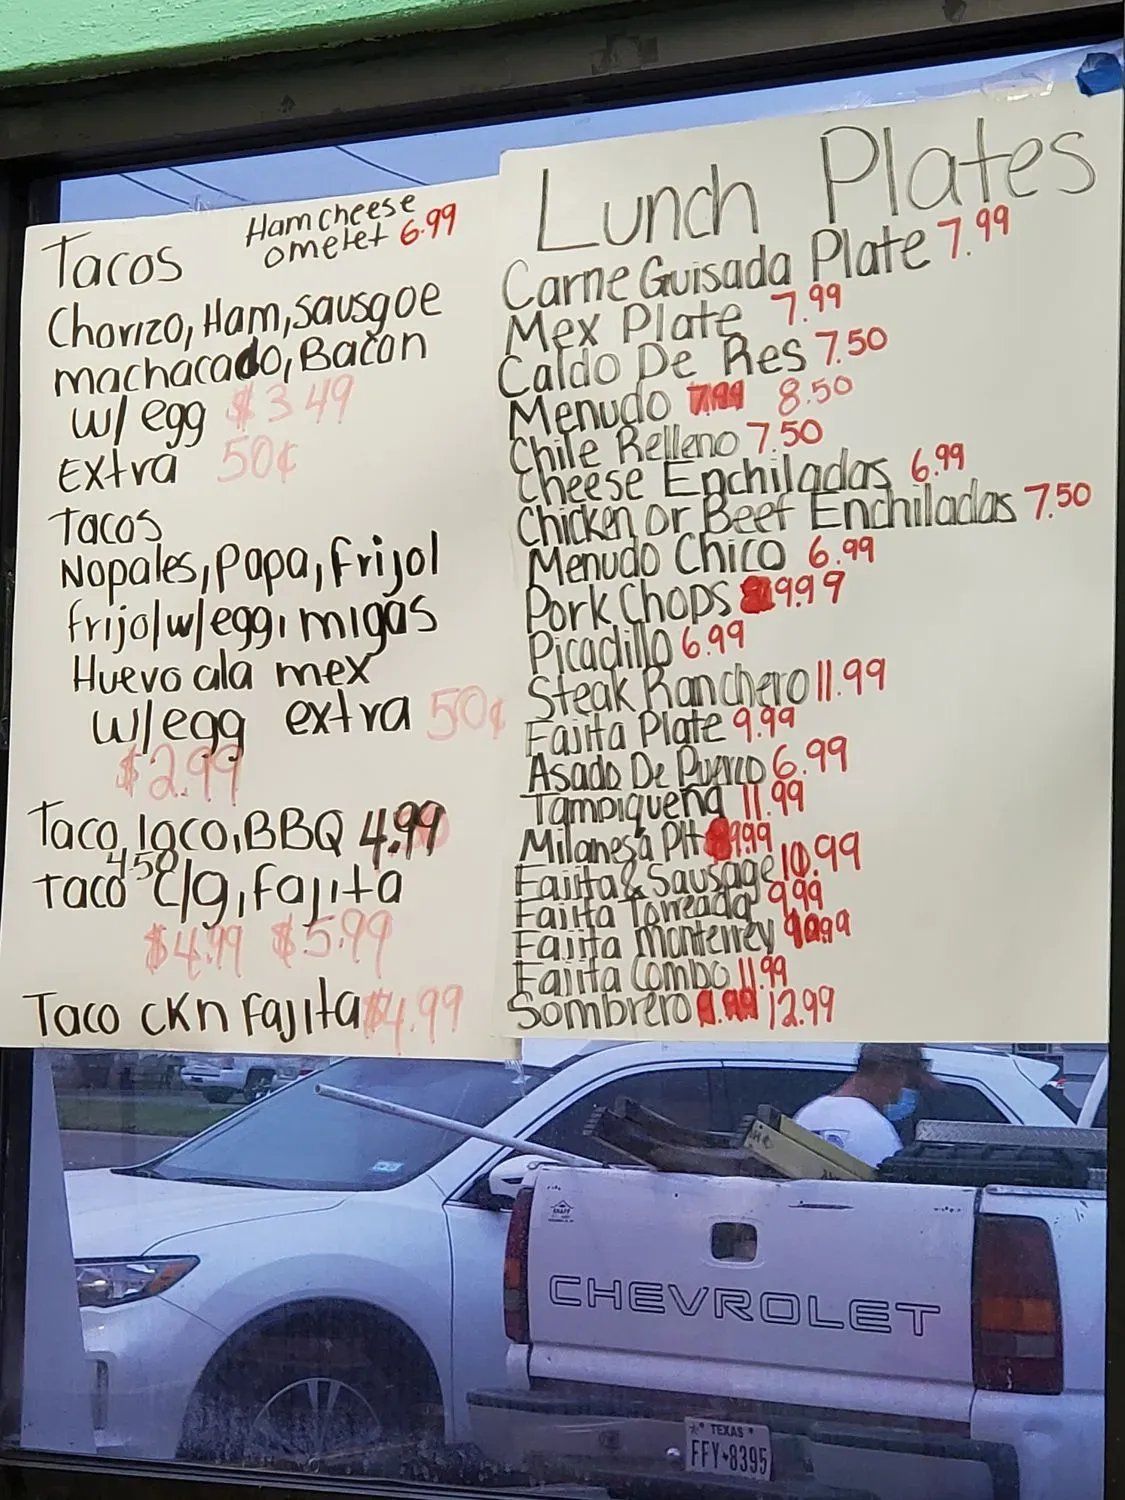 Ham cheese
omelet 6.99
Tacos
Chorizo, Ham, sausgoe
machacado, Bacon
w/ egg $3.49
Extra 50¢
Tacos
Nopales, Papa, frijol
frijol w/egg, migas
Huevo ala mex
w/egg extra 50¢
$2.99
Taco, loco, BBQ 4.99
4.50
Taco c/g, fajita
$4.99 $5.99
Taco ckn Fajita $4.99
Lunch Plates
Carne Guisada Plate 7.99
Mex Plate 7.99
Caldo De Res 7.50
Menudo 7.99 8.50
Chile Relleno 7.50
Cheese Enchiladas 6.99
Chicken or Beef Enchiladas 7.50
Menudo Chico 6.99
Pork Chops 9.99
Picadillo 6.99
Steak Ranchero 11.99
Fajita Plate 9.99
Asado De Puerco 6.99
Tampiqueña 11.99
Milanesa Plt 9.99
Fajita & Sausage 10.99
Fajita Toreada 9.99
Fajita Monterrey
Fajita Combo 11.99
Sombrero 12.99
CHEVROLET
TEXAS
FFY*8395